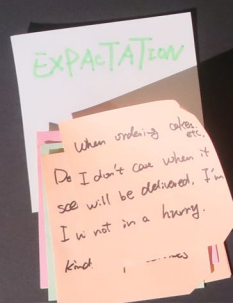 EXPACTATION
When ordering cakes, etc,
Do I don't care when it
see will be delivered, I'm
I in not in a hurry.
kind